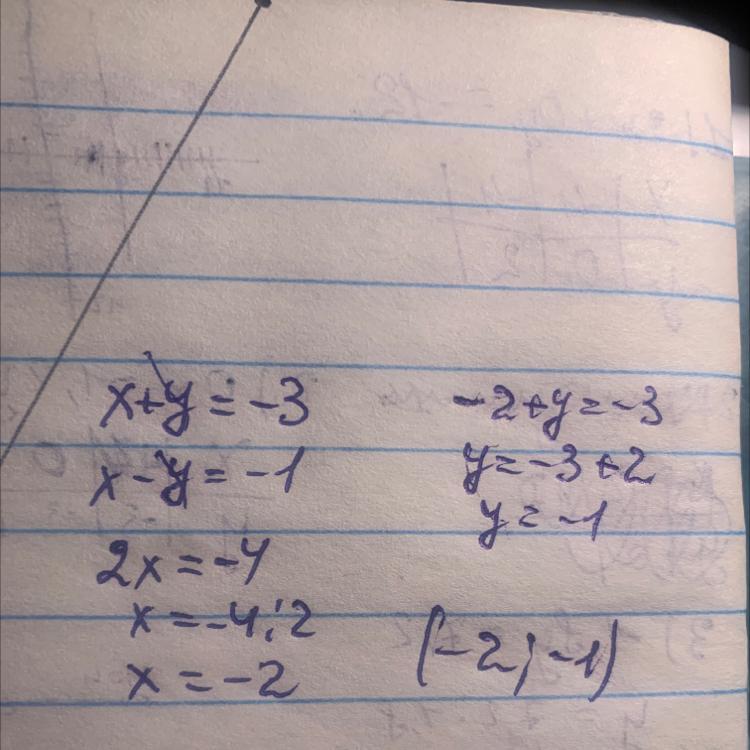 x+y=-3
x-y=-1
2x=-4
x=-4:2
x=-2
-2+y=-3
y=-3+2
y=-1
(-2;-1)